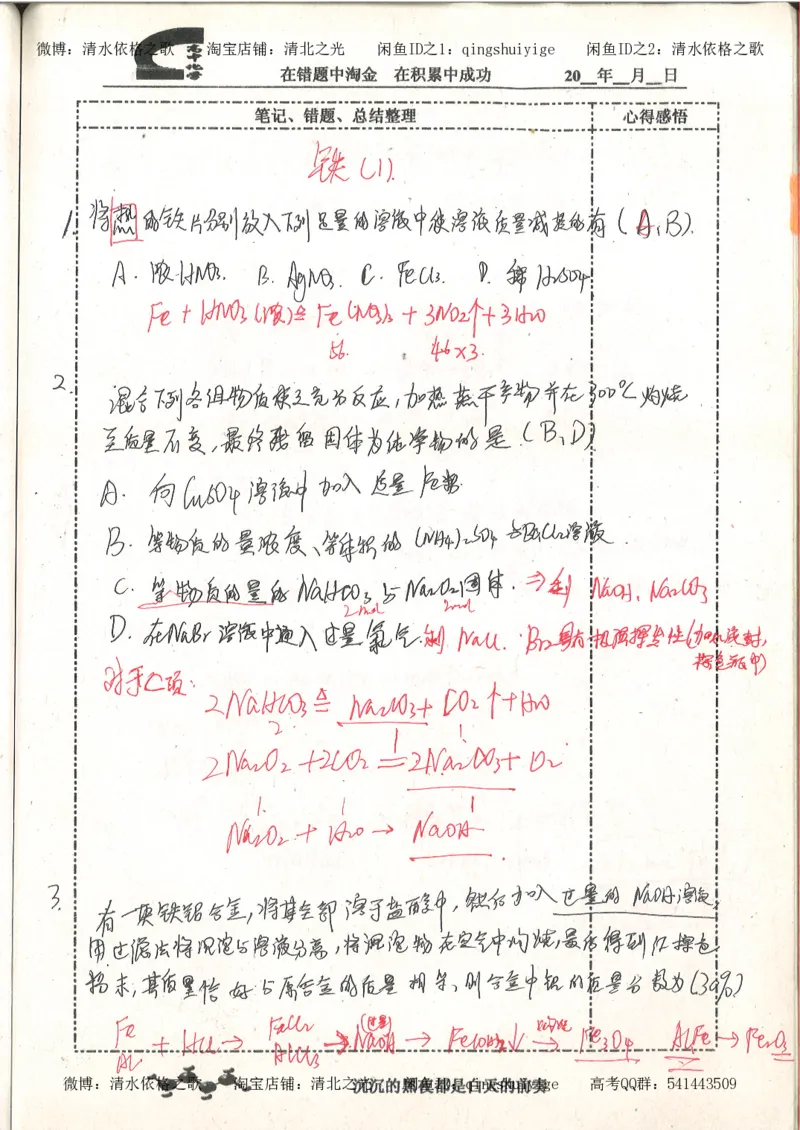 微博：清水依格之歌 淘宝店铺：清北之光 闲鱼ID之1：qingshuiyige 闲鱼ID之2：清水依格之歌
高中化学
在错题中淘金 在积累中成功 20__年__月__日
笔记、错题、总结整理 心得感悟
铁(1).
1. 将热的铁片分别放入下列足量的溶液中使溶液质量减轻的有(A、B).
A. 浓HNO3. B. AgNO3. C. FeCl3. D. 稀H2SO4
Fe + HNO3(浓) ≙ Fe(NO3)3 + 3NO2↑ + 3H2O
56. 46×3.
2. 混合下列各组物质使之充分反应,加热蒸干产物并在300℃灼烧
至质量不变,最终残留固体为纯净物的是(B、D)
A. 向CuSO4溶液中加入适量Fe粉
B. 等物质的量浓度、等体积的(NH4)2SO4与BaCl2溶液
C. 等物质的量的NaHCO3与Na2O2固体. ⇒剩 NaOH、Na2CO3
2mol 2mol
D. 在NaBr溶液中通入过量氯气. 剩NaCl. Br2具有极强挥发性(加热读时,
棕色
对于C项:
2NaHCO3 ≙ Na2CO3 + CO2↑ + H2O
2 1 1
2Na2O2 + 2CO2 = 2Na2CO3 + O2
1 1 1
Na2O2 + H2O → NaOH
3. 有一块铁铝合金,将其全部溶于盐酸中,然后加入过量的NaOH溶液,
用过滤法将沉淀与溶液分离,将沉淀物在空气中灼烧,最后得到红棕色
粉末,其质量恰好与原合金的质量相等,则合金中铝的质量分数为(30%)
Fe
Al + HCl → FeCl2
AlCl3 → (过量)
NaOH → Fe(OH)2↓ 灼烧→ Fe3O4 AlFe → Fe2O3
微博：清水依格之歌 淘宝店铺：清北之光 闲鱼ID之1：qingshuiyige 高考QQ群：541443509
沉沉的黑夜都是白天的前奏